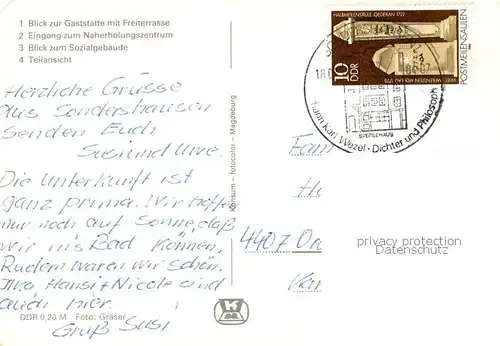 1 Blick zur Gaststätte mit Freiterrasse
2 Eingang zum Naherholungszentrum
3 Blick zum Sozialgebäude
4 Teilansicht
Herzliche Grüsse
aus Sondershausen
senden Euch
Susi und Uwe.
Die Unterkunft ist
ganz prima. Wir hoffen
nur noch auf Sonne, daß
wir ins Bad können.
Rudern waren wir schon.
Ilka Hansi + Nicole sind
auch hier.
Gruß Susi
DDR 0,20 M Foto: Gräser
Konsum – fotocolor – Magdeburg
HALBMEILENSÄULE OEDERAN 1722
10 DDR
POSTMEILENSÄULEN
STEPLEHAUS
Johann Karl Wezel · Dichter und Philosoph
Fam
4407 Or
privacy protection
Datenschutz